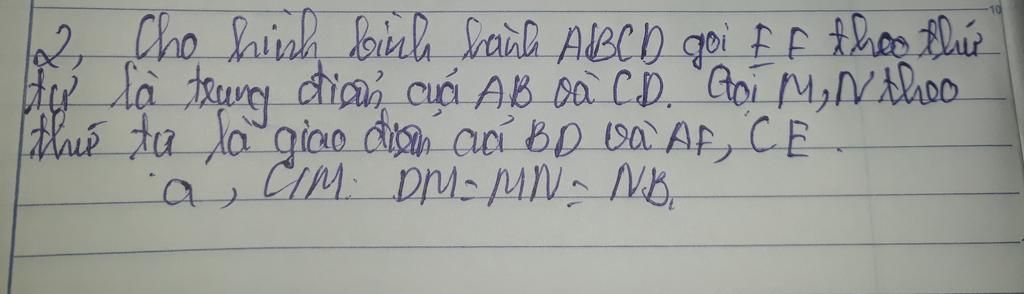 2, Cho hình bình hành ABCD gọi E F theo thứ
tự là trung điểm của AB và CD. Gọi M, N theo
thứ tự là giao điểm của BD và AF, CE.
a, C/M: DM = MN = NB.